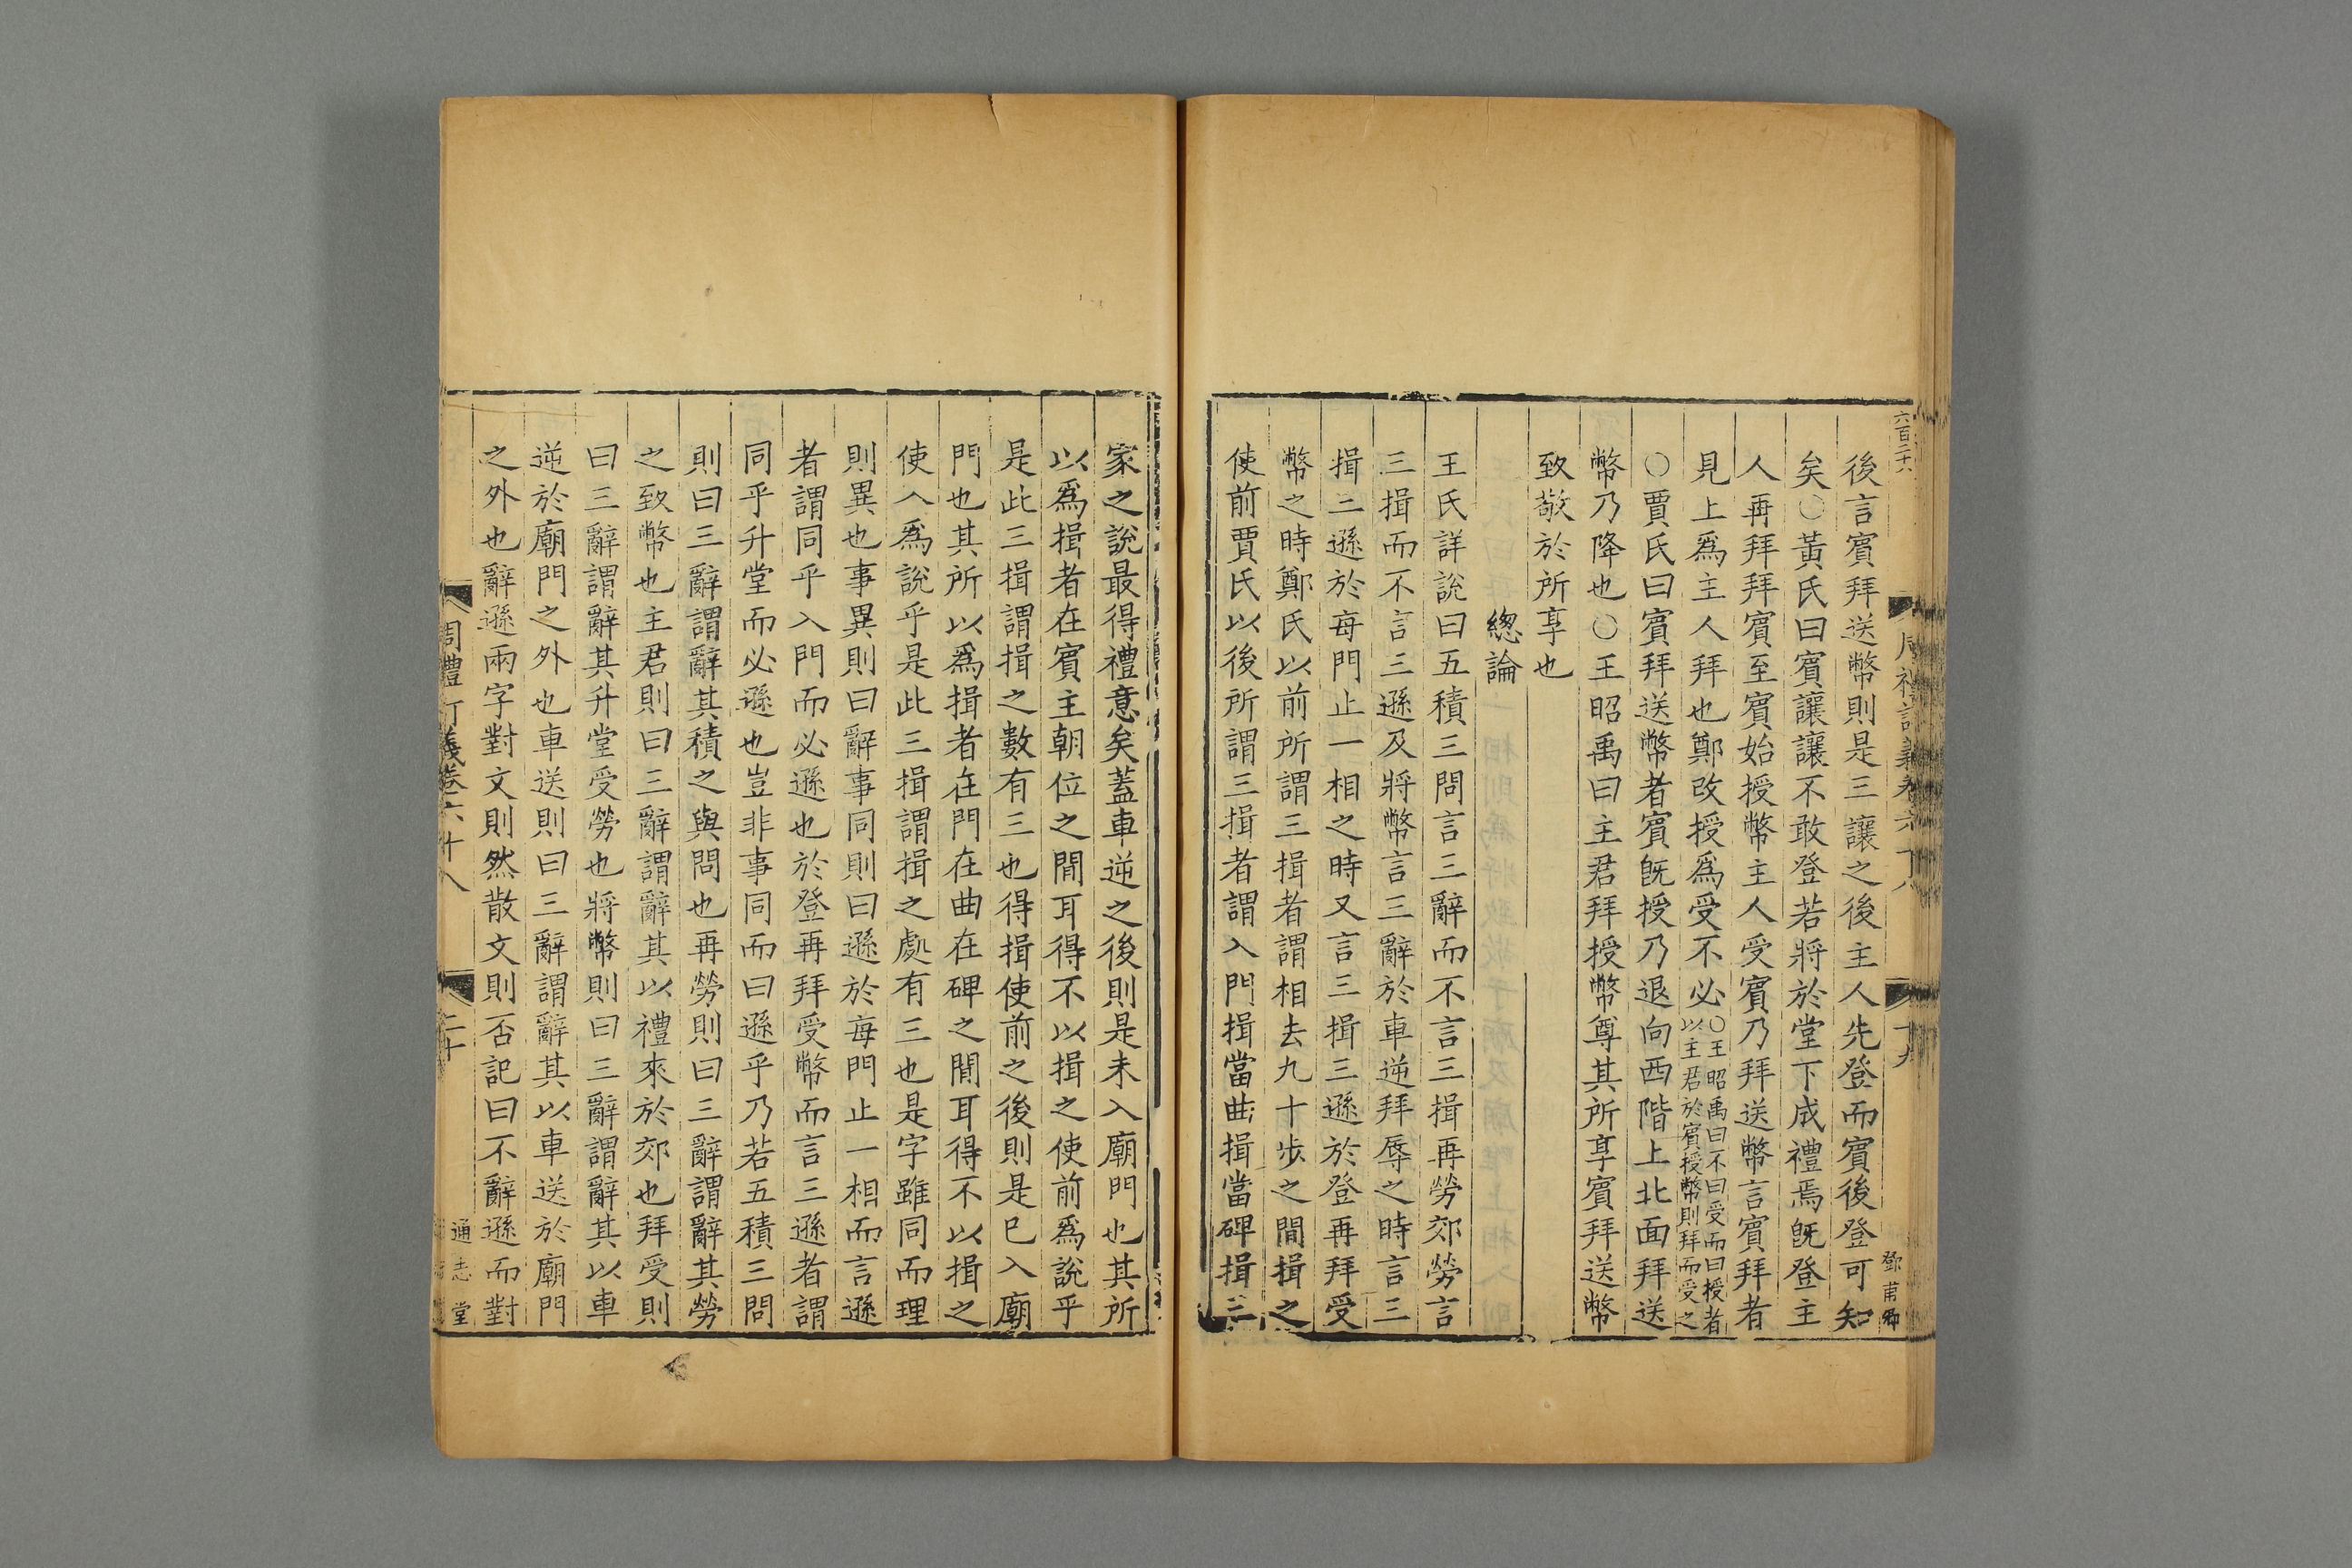 六百二十六
後言賓拜送幣則是三讓之後主人先登而賓後登可知
矣○黃氏曰賓讓讓不敢登若將於堂下成禮焉旣登主
人再拜拜賓至賓始授幣主人受賓乃拜送幣言賓拜者
見上爲主人拜也鄭改授爲受不必○王昭禹曰不曰受而曰授者以主君於賓授幣則拜而受之
○賈氏曰賓拜送幣者賓旣授乃退向西階上北面拜送
幣乃降也○王昭禹曰主君拜授幣尊其所享賓拜送幣
致敬於所享也
總論
王氏詳說曰五積三問言三辭而不言三揖再勞郊勞言
三揖而不言三遜及將幣言三辭於車逆拜辱之時言三
揖三遜於每門止一相之時又言三揖三遜於登再拜受
幣之時鄭氏以前所謂三揖者謂相去九十步之間揖之
使前賈氏以後所謂三揖者謂入門揖當曲揖當碑揖三
周禮訂義卷六十八
十九
鄧甫卿
家之說最得禮意矣蓋車逆之後則是未入廟門也其所
以爲揖者在賓主朝位之間耳得不以揖之使前爲說乎
是此三揖謂揖之數有三也得揖使前之後則是已入廟
門也其所以爲揖者在門在曲在碑之間耳得不以揖之
使入爲說乎是此三揖謂揖之處有三也是字雖同而理
則異也事異則曰辭事同則曰遜於每門止一相而言遜
者謂同乎入門而必遜也於登再拜受幣而言三遜者謂
同乎升堂而必遜也豈非事同而曰遜乎乃若五積三問
則曰三辭謂辭其積之與問也再勞則曰三辭謂辭其勞
之致幣也主君則曰三辭謂辭其以禮來於郊也拜受則
曰三辭謂辭其升堂受勞也將幣則曰三辭謂辭其以車
逆於廟門之外也車送則曰三辭謂辭其以車送於廟門
之外也辭遜兩字對文則然散文則否記曰不辭遜而對
周禮訂義卷六十八
二十
通志堂